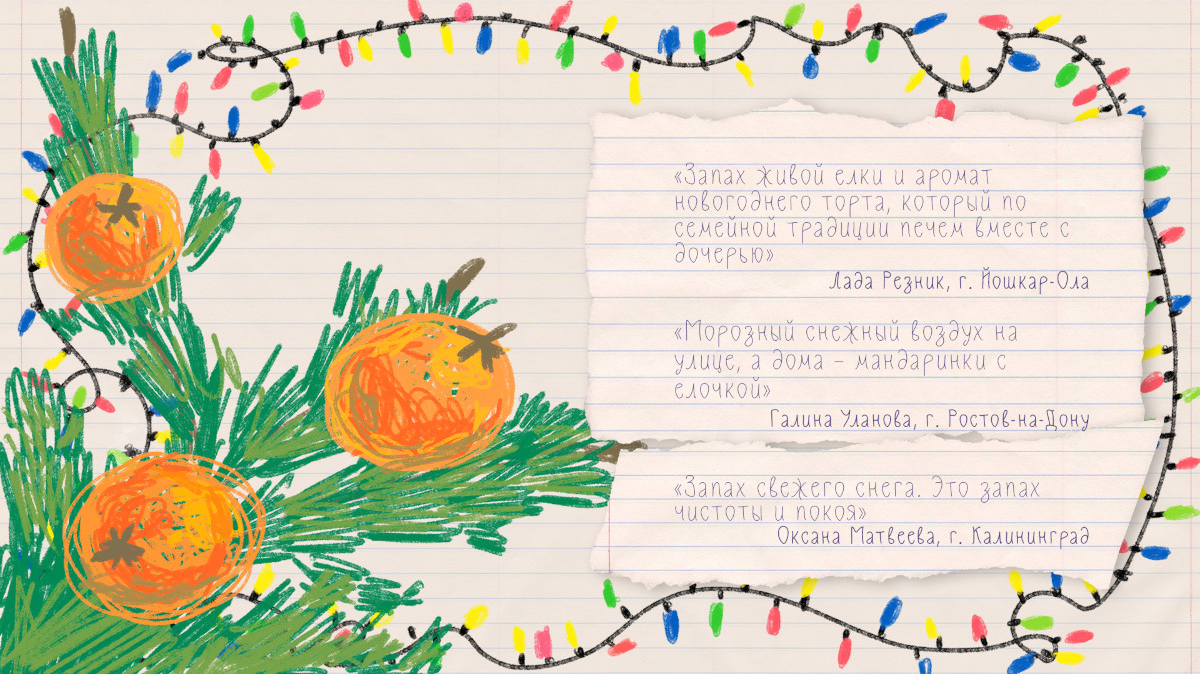 «Запах живой елки и аромат
новогоднего торта, который по
семейной традиции печем вместе с
дочерью»
Лада Резник, г. Йошкар-Ола
«Морозный снежный воздух на
улице, а дома – мандаринки с
елочкой»
Галина Уланова, г. Ростов-на-Дону
«Запах свежего снега. Это запах
чистоты и покоя»
Оксана Матвеева, г. Калининград